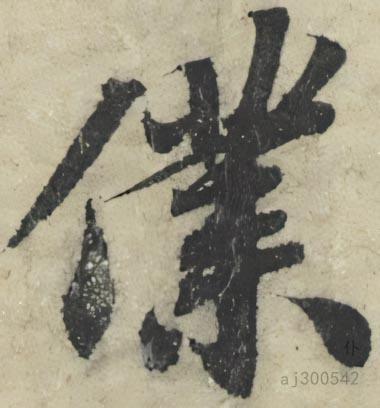 僕
仆
aj300542